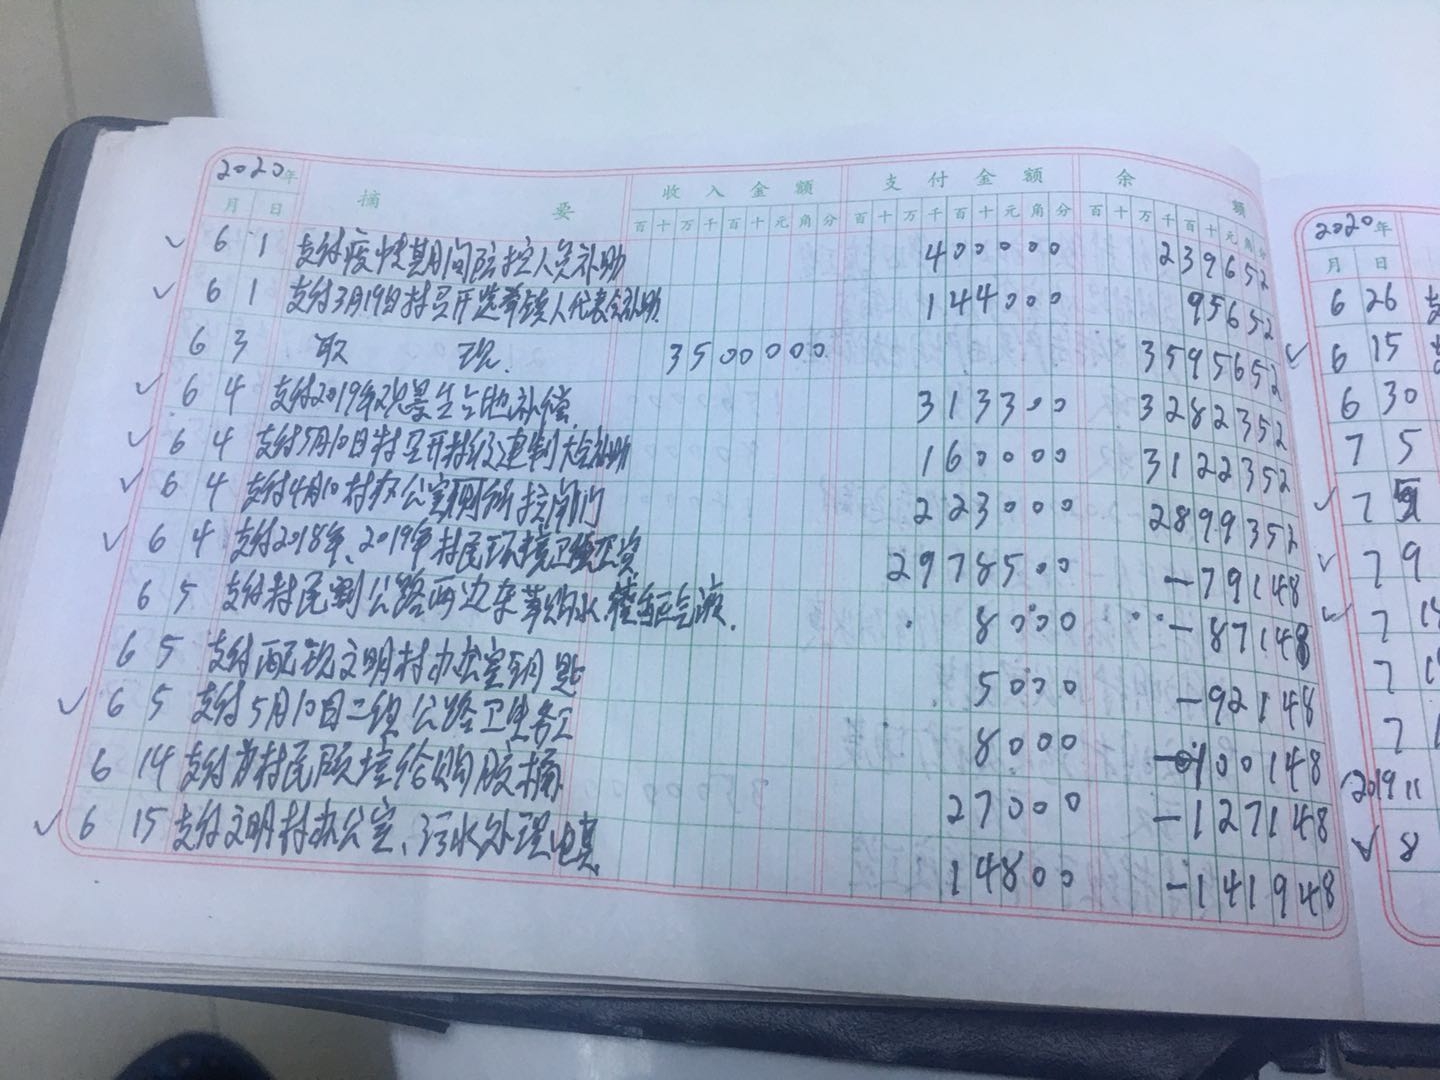 2020年 摘 要 收入金额 支付金额 余 额
月 日 百十万千百十元角分 百十万千百十元角分 百十万千百十元角分
6 1 支付疫情期间防控人员补助 400000 239652
6 1 支付3月19日村召开选举镇人代表会补助 144000 95652
6 3 取 现. 3500000 3595652
6 4 支付2019年观景台占地补偿 313300 3282352
6 4 支付5月10日村召开村级建制大会补助 160000 3122352
6 4 支付4月10村办公室厕所 门 223000 2899352
6 4 支付2018年、2019年村民环境卫 工资 2978500 -79148
6 5 支付村民 公路两边杂草购水、 液. 8000 -87148
6 5 支付配观文明村办公室钥匙 5000 -92148
6 5 支付5月10日二组公路卫生务工 8000 -100148
6 14 支付为村民 购胶桶 27000 -127148
6 15 支付文明村办公室、污水处理电费 14800 -141948
2020年
月 日
6 26
6 15
6 30
7 5
7
7 9
7
7
7
2019 11
8